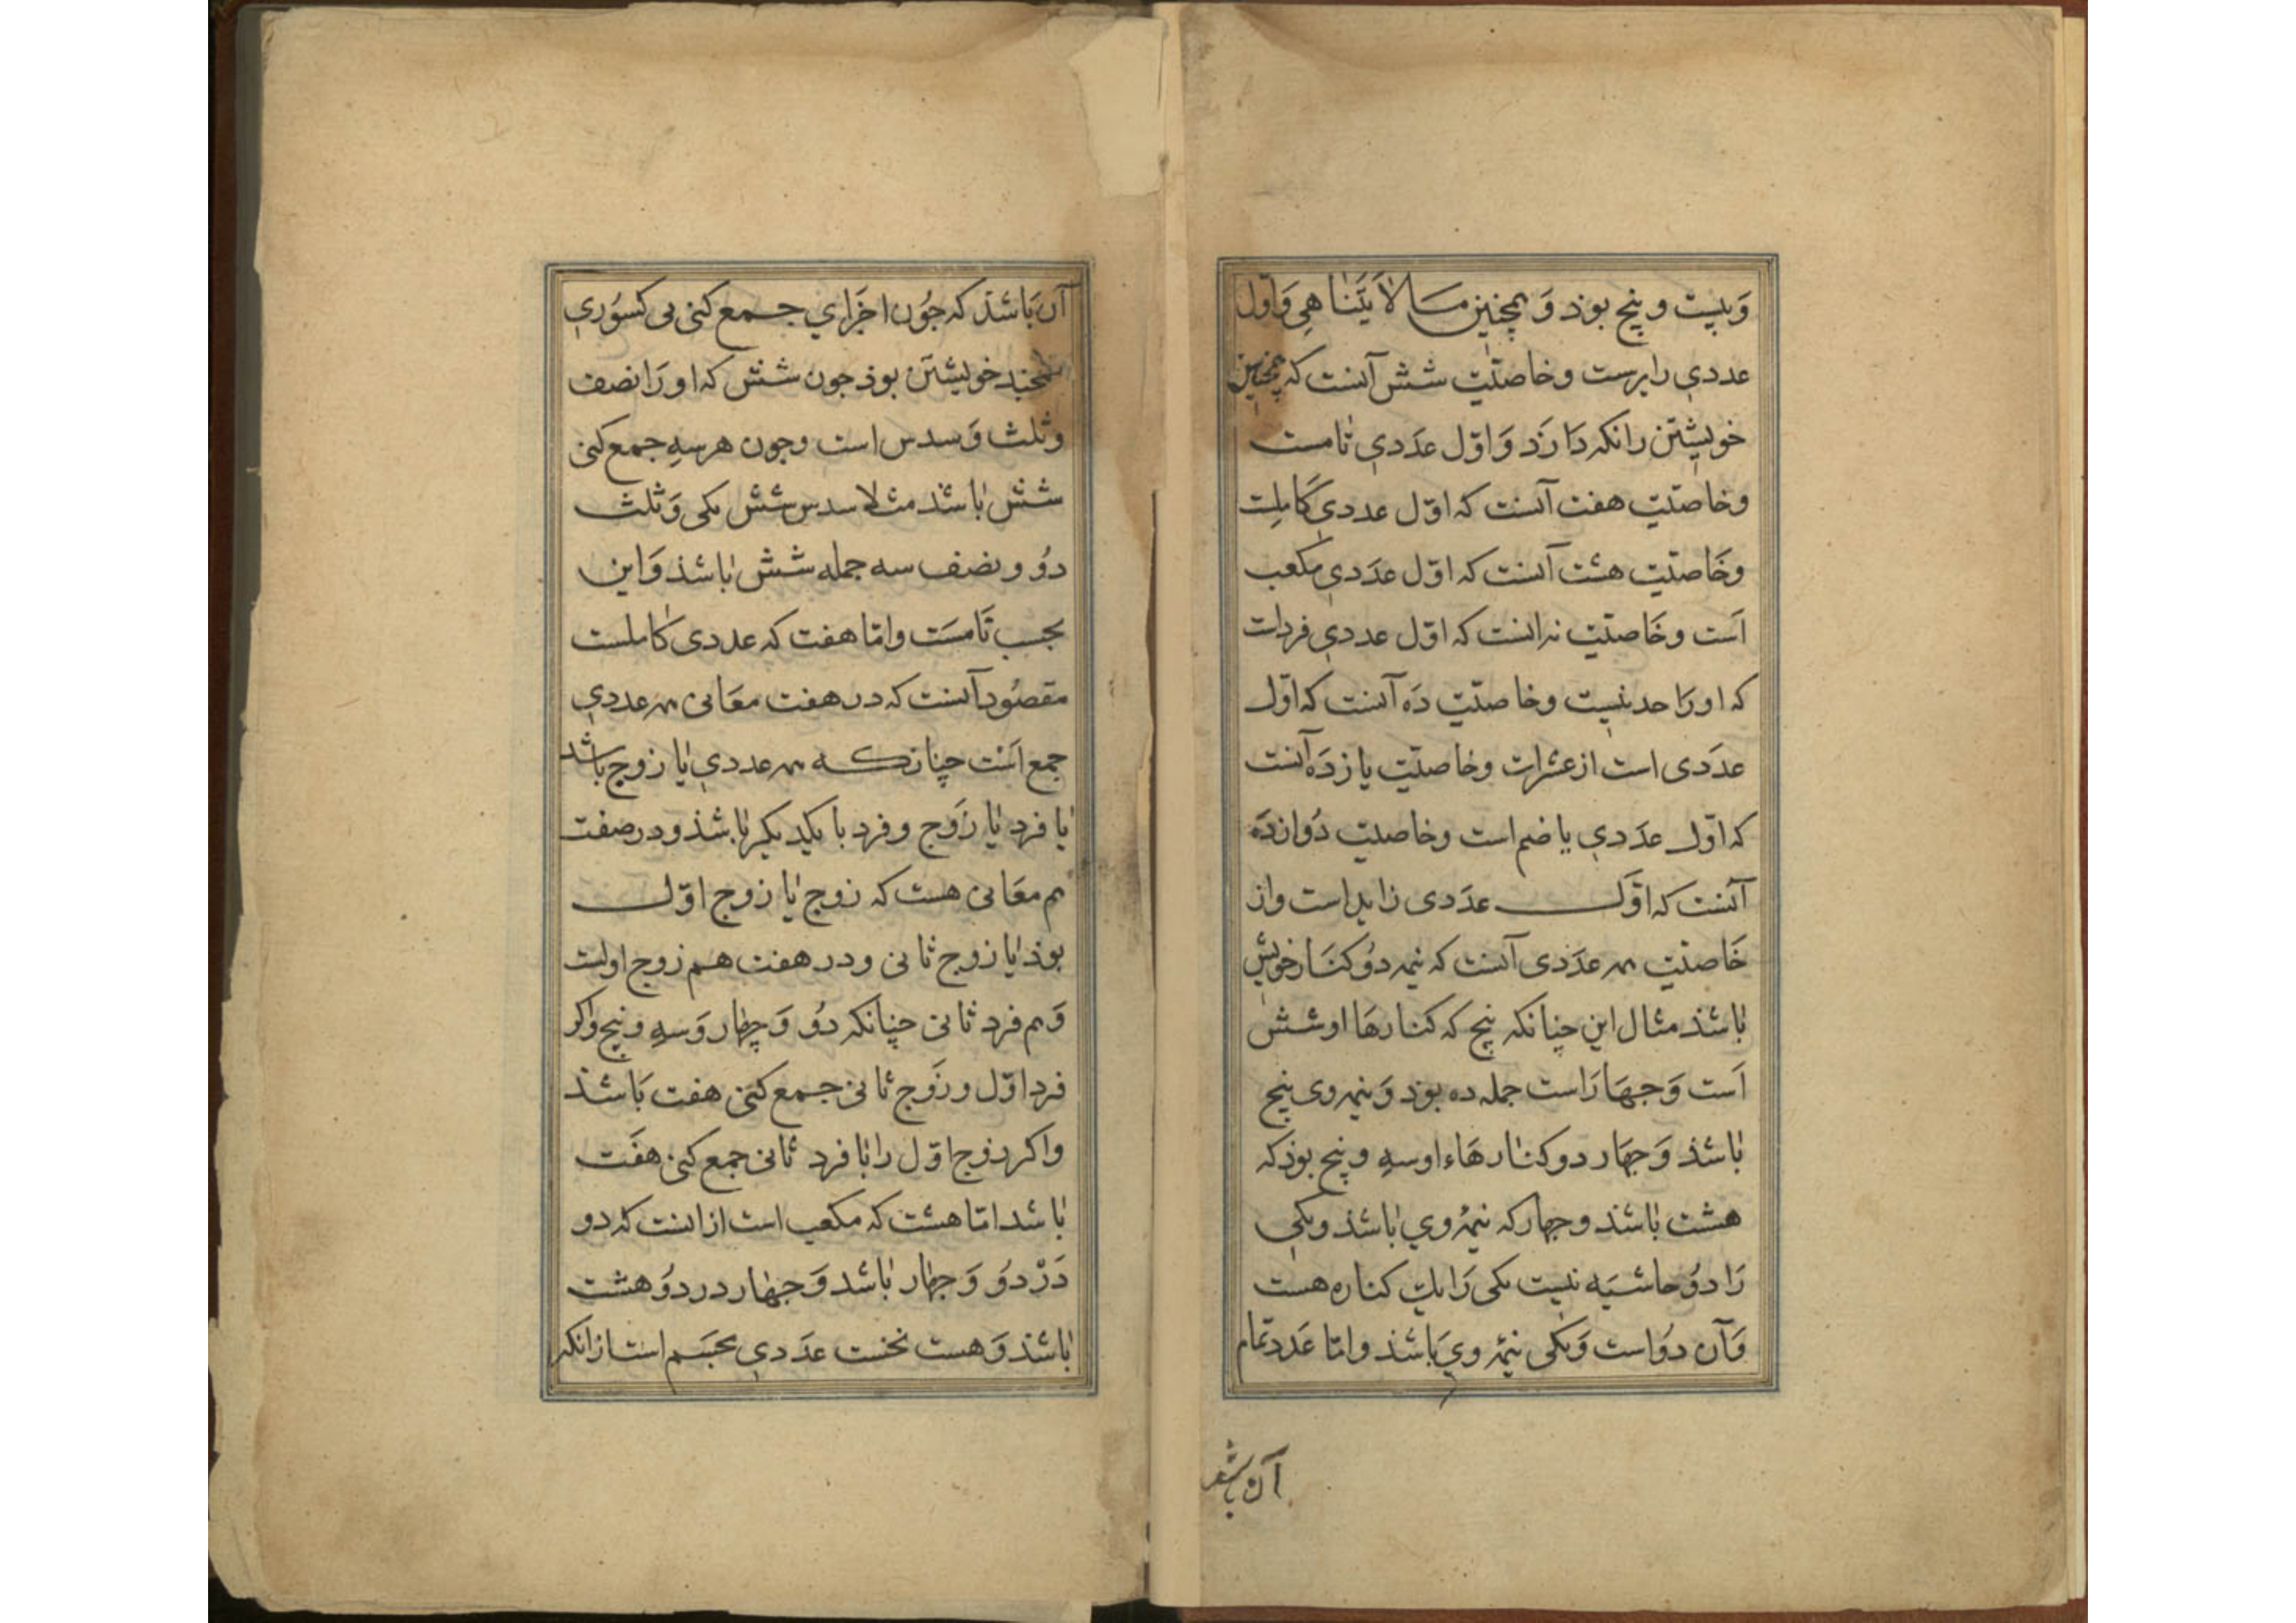 وَبیست و پنج بوذ وَ همچنین مسالا یَتَناهی وَاول
عددی دایرست وخاصیّت شش آنست که همچنین
خویشتن رانکه دارَد وَاوّل عدَدی تامست
وخاصیّت هفت آنست که اوّل عددی کاملست
وخَاصیّت هشت آنست که اوّل عدَدی مکعب
اَست وخَاصیّت نه انست که اوّل عددی فردات
که اورَا حد نیست وخاصیّت دَه آنست که اوّل
عدَدی است از عشرات وخاصیّت یازدَه آنست
که اوّل عدَدی یاضم است وخاصیت دُوازدَه
آنست که اوّل عدَدی زایداست واز
خَاصیّت هر عدَدی آنست که نیمه دوُکنَار خویش
باشذ مثال این چنانکه پنج که کنارهَا او شش
اَست وَجهَارَاست جمله ده بوذ وَنیمه وی پنج
باشذ وَجهَار دوکنارهَاء او سه و پنج بوذکه
هشت باشذ وجهار که نیمهٔ وی باشذ ویکی
رَا دوُحاشیَه نیست یکی رَا یك کناره هست
وَآن دوُاست وَیکی نیمهٔ وی باشذ وامّا عَدَد تمام
آن باشد
آن بَاشَذ که جوُن اجزَاری جمع کنی بی کسوُری
همچند خویشتن بوذ جون شش که او رَا نصف
وثلث وَسدس است وجون هرسه جمع کنی
شش باشَذ مثلا سدس شش یکی وَثلث
دوُ و نصف سه جمله شش باشذ وَاین
بجسب تَامسَت وامّا هفت که عددی کاملست
مقصوُد آنست که در هفت معَانی هر عددی
جمع اَست چنانکه هر عددی یا زوج باشد
یا فرد یا زَوج وفرد با یکدیکر باشذ ودرصفت
هم معَانی هست که زوج یا زوج اوّل
بوذ یا زوج ثانی ودر هفت هم زوج اولست
وَهم فرد ثانی چنانکه دوُ وَچهار وَسه وپنج واکر
فرد اوّل وزَوج ثانی جمع کنی هفت بَاشَذ
واکر زوج اوّل را با فرد ثانی جمع کنی هفَت
باشد امّا هشت که مکعب است از انست که دو
دَرْ دوُ وَجهار باشد وَجهار در دوُ هشت
باشذ وَهست نخست عدَدی مجسَم است ازانکه